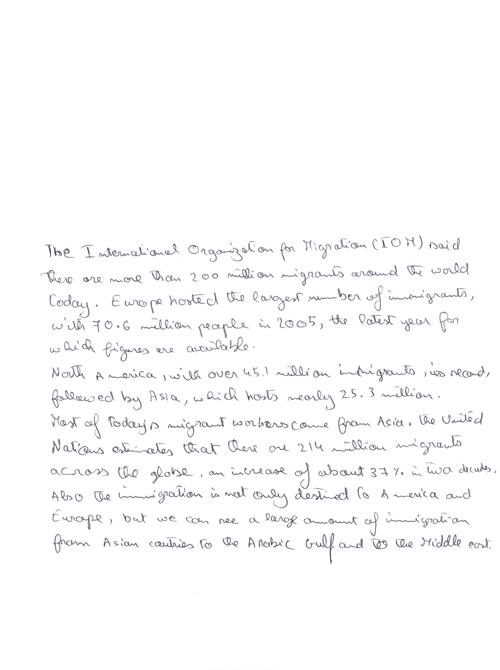 The International Organization for Migration (IOM) said
there are more than 200 million migrants around the world
today. Europe hosted the largest number of immigrants,
with 70.6 million people in 2005, the latest year for
which figures are available.
North America, with over 45.1 million immigrants, is second,
followed by Asia, which hosts nearly 25.3 million.
Most of today's migrant workers come from Asia. the United
Nations estimates that there are 214 million migrants
across the globe, an increase of about 37% in two decades.
Also the immigration is not only destined to America and
Europe, but we can see a large amount of immigration
from Asian coutries to the Arabic Gulf and to the Middle east.